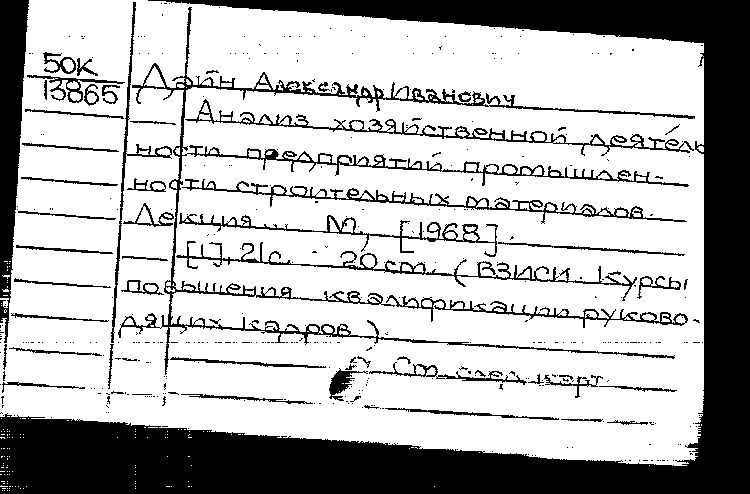 50К
13865
Лэйн, Александр Иванович
Анализ хозяйственной деятель
ности предприятий промышлен-
ности строительных материалов.
Лекция... М., [1968].
[1], 21с. 20 см. (ВЗИСИ. Курсы
повышения квалификации руково-
дящих кадров)
См. след. карт.